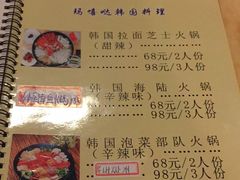 玛喜哒韩国料理
韩国拉面芝士火锅
(甜辣) 68元/2人份
98元/3人份
韩国海陆火锅
(辛辣味) 68元/2人份
98元/3人份
韩国泡菜部队火锅
(辛辣味) 68元/2人份
98元/3人份